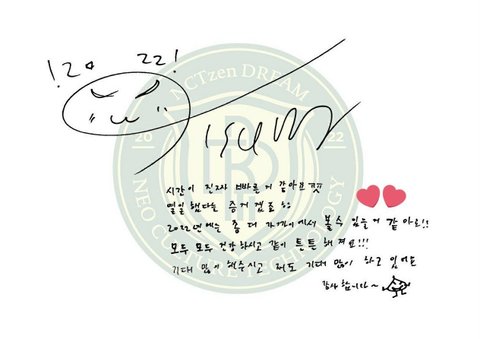 !20 22!
NCTzen DREAM
20 22
NEO CULTURE TECHNOLOGY
시간이 진짜 빠른거 같아요
열일했다는 증거겠죠
2022년에는 좀 더 가까이에서 볼수 있을거 같아요!!
모두 모두 건강하시고 같이 튼튼해져요!!!
기대 많이 해주시고 저도 기대 많이 하고 있어요
감사합니다~